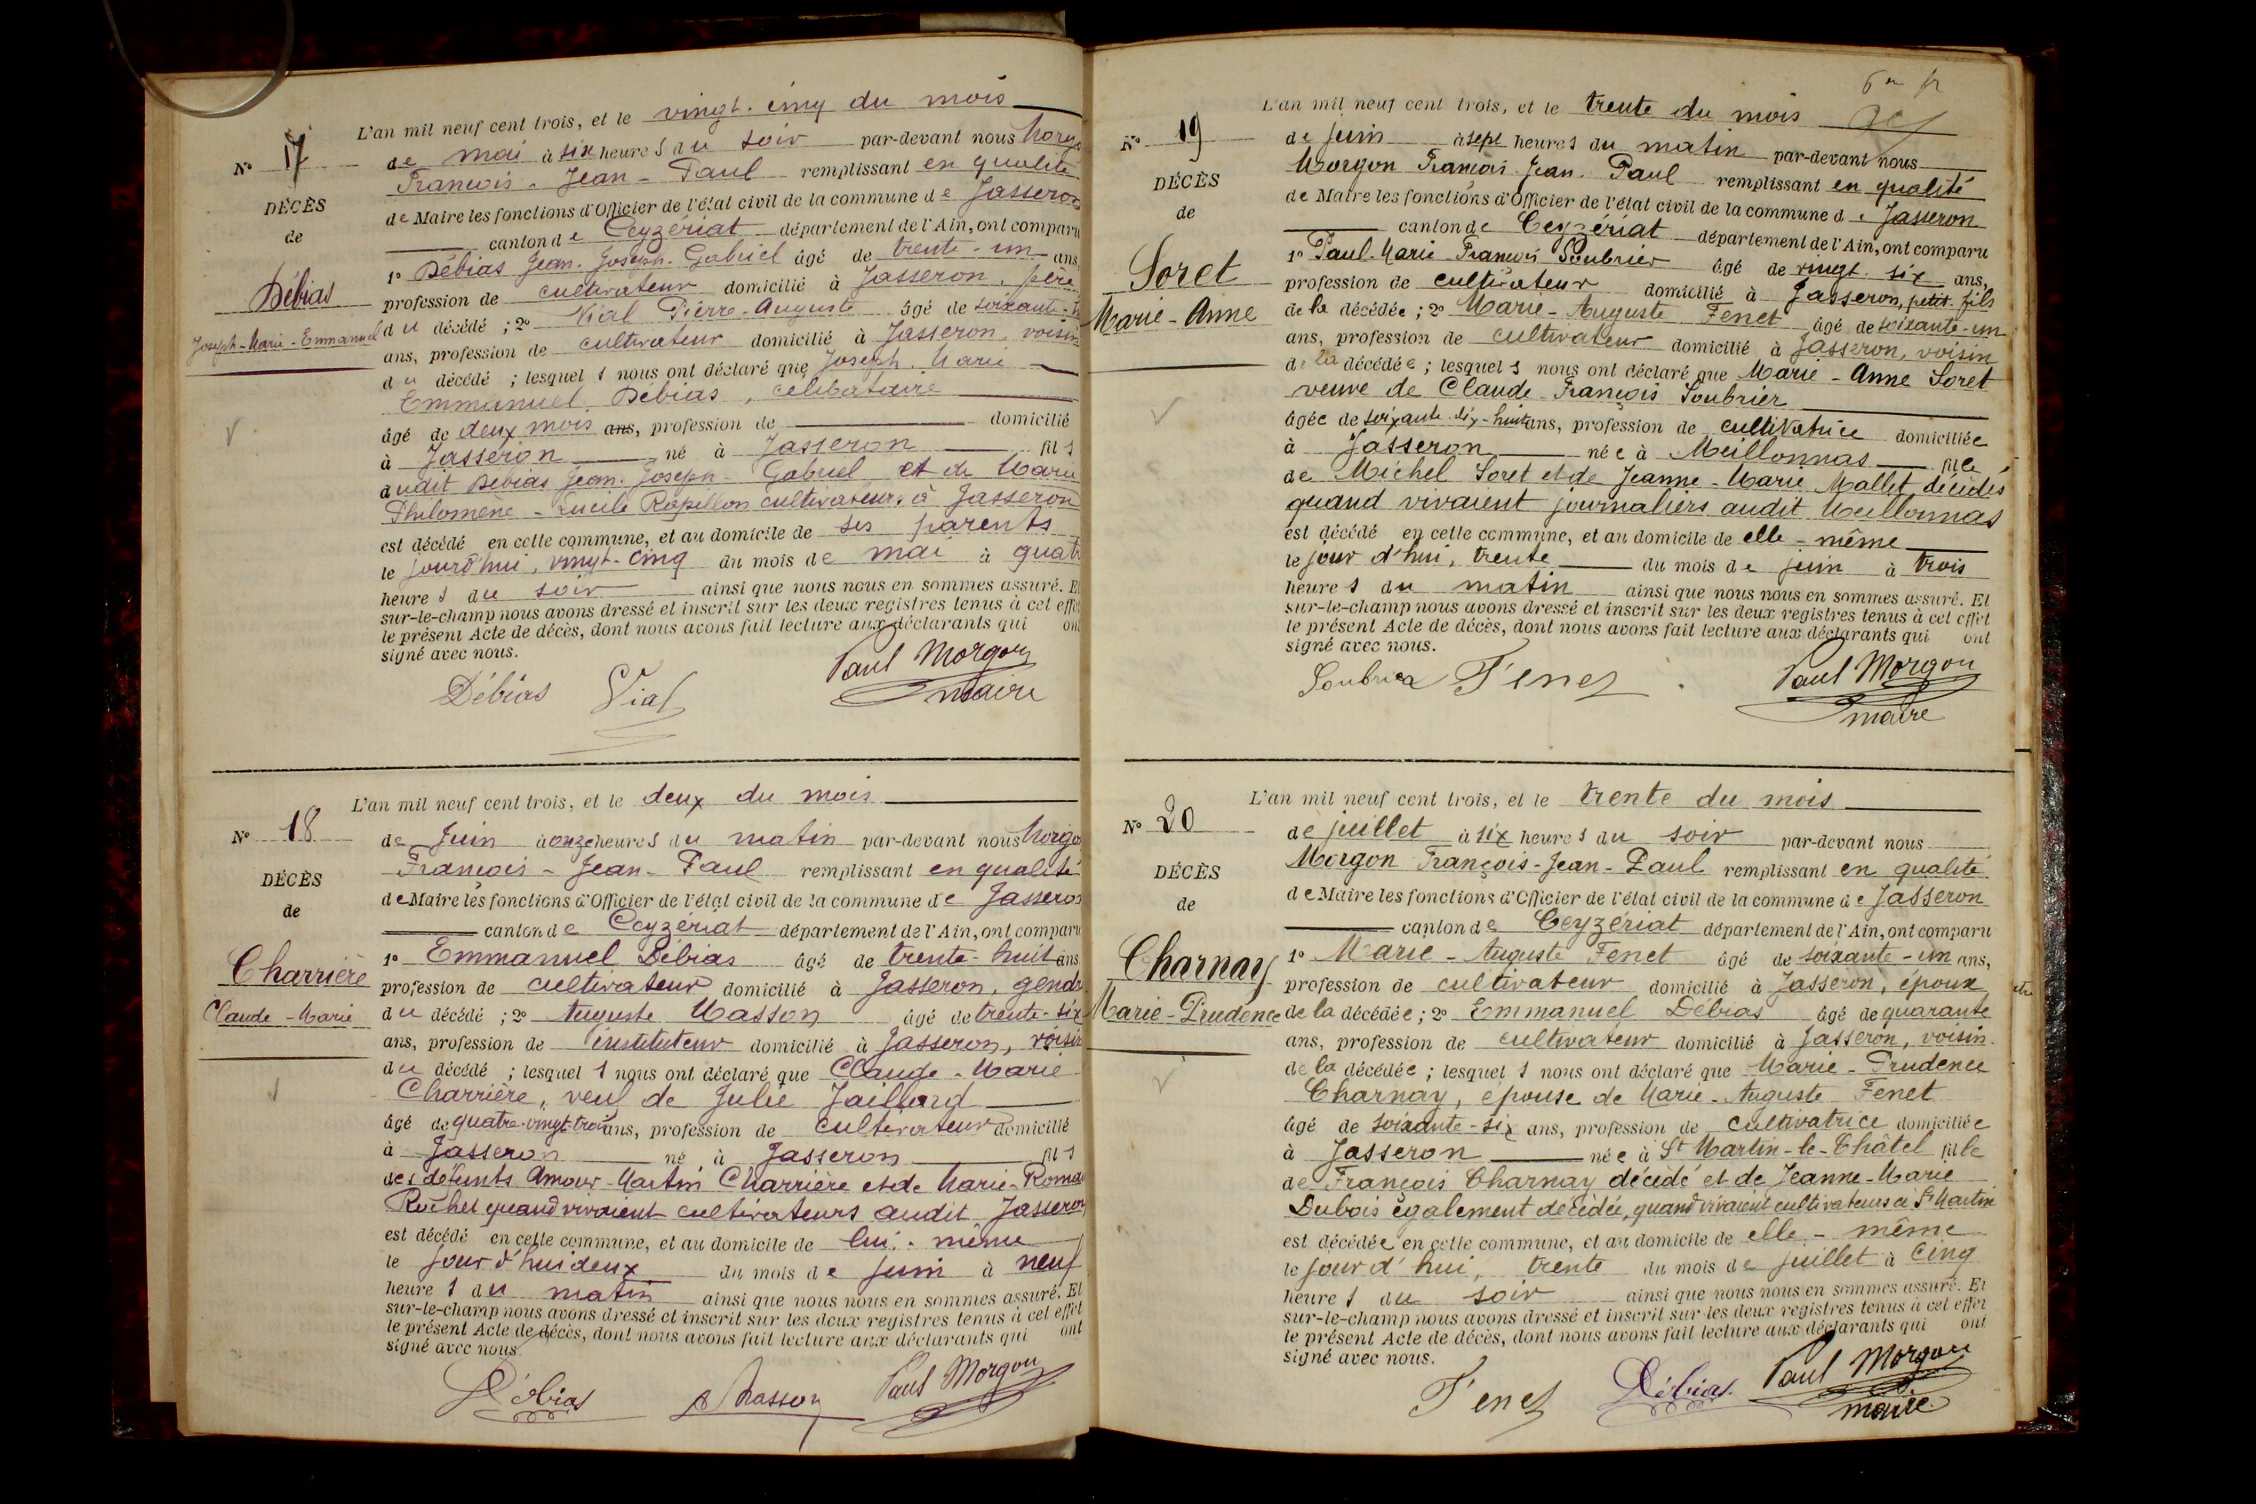 N° 17
DÉCÈS
de
Débias
Joseph-Marie-Emmanuel
L'an mil neuf cent trois, et le vingt-cinq du mois
de mai à six heures du soir par-devant nous Morgo
François-Jean-Paul remplissant en qualité
de Maire les fonctions d'Officier de l'état civil de la commune de Jasseron
canton de Ceyzériat département de l'Ain, ont comparu
1° Débias Jean-Joseph-Gabriel âgé de trente-un ans,
profession de cultivateur domicilié à Jasseron, père
du décédé ; 2° Vial Pierre-Auguste âgé de soixante
ans, profession de cultivateur domicilié à Jasseron, voisin
du décédé ; lesquels nous ont déclaré que Joseph-Marie
Emmanuel Débias, célibataire
âgé de deux mois ans, profession de domicilié
à Jasseron né à Jasseron fils
dudit Débias Jean-Joseph-Gabriel et de Marie
Philomène-Lucile Rapillon cultivateurs à Jasseron
est décédé en cette commune, et au domicile de ses parents
le jourd'hui, vingt-cinq du mois de mai à quatr
heures du soir ainsi que nous nous en sommes assuré. Et
sur-le-champ nous avons dressé et inscrit sur les deux registres tenus à cet effet
le présent Acte de décès, dont nous avons fait lecture aux déclarants qui ont
signé avec nous.
Débias Vial Paul Morgon
maire
N° 18
DÉCÈS
de
Charrière
Claude-Marie
L'an mil neuf cent trois, et le deux du mois
de Juin à onze heures du matin par-devant nous Morgo
François-Jean-Paul remplissant en qualité
de Maire les fonctions d'Officier de l'état civil de la commune de Jasseron
canton de Ceyzériat département de l'Ain, ont comparu
1° Emmanuel Débias âgé de trente-huit ans
profession de cultivateur domicilié à Jasseron, gendr
du décédé ; 2° Auguste Masson âgé de trente-six
ans, profession de instituteur domicilié à Jasseron, voisin
du décédé ; lesquels nous ont déclaré que Claude-Marie
Charrière, veuf de Julie Jaillard
âgé de quatre-vingt-trois ans, profession de cultivateur domicilié
à Jasseron né à Jasseron fils
des défunts Amour-Martin Charrière et de Marie-Roma
Rochet quand vivaient cultivateurs audit Jasseron
est décédé en cette commune, et au domicile de lui-même
le jour d'hui deux du mois de juin à neuf
heures du matin ainsi que nous nous en sommes assuré. Et
sur-le-champ nous avons dressé et inscrit sur les deux registres tenus à cet effet
le présent Acte de décès, dont nous avons fait lecture aux déclarants qui ont
signé avec nous.
Débias A Masson Paul Morgon
N° 19
DÉCÈS
de
Soret
Marie-Anne
L'an mil neuf cent trois, et le trente du mois
de juin à sept heures du matin par-devant nous
Morgon François-Jean-Paul remplissant en qualité
de Maire les fonctions d'Officier de l'état civil de la commune de Jasseron
canton de Ceyzériat département de l'Ain, ont comparu
1° Paul-Marie-François Soubrier âgé de vingt-six ans,
profession de cultivateur domicilié à Jasseron, petit-fils
de la décédée ; 2° Marie-Auguste Fenet âgé de soixante-un
ans, profession de cultivateur domicilié à Jasseron, voisin
de la décédée ; lesquels nous ont déclaré que Marie-Anne Soret
veuve de Claude-François Soubrier
âgée de soixante-dix-huit ans, profession de cultivatrice domiciliée
à Jasseron née à Meillonnas fille
de Michel Soret et de Jeanne-Marie Mallet décédés
quand vivaient journaliers audit Meillonnas
est décédé en cette commune, et au domicile de elle-même
le jour d'hui, trente du mois de juin à trois
heures du matin ainsi que nous nous en sommes assuré. Et
sur-le-champ nous avons dressé et inscrit sur les deux registres tenus à cet effet
le présent Acte de décès, dont nous avons fait lecture aux déclarants qui ont
signé avec nous.
Soubrier Fenet Paul Morgon
maire
N° 20
DÉCÈS
de
Charnay
Marie-Prudence
L'an mil neuf cent trois, et le trente du mois
de juillet à six heures du soir par-devant nous
Morgon François-Jean-Paul remplissant en qualité
de Maire les fonctions d'Officier de l'état civil de la commune de Jasseron
canton de Ceyzériat département de l'Ain, ont comparu
1° Marie-Auguste Fenet âgé de soixante-un ans,
profession de cultivateur domicilié à Jasseron, époux
de la décédée ; 2° Emmanuel Débias âgé de quarante
ans, profession de cultivateur domicilié à Jasseron, voisin
de la décédée ; lesquels nous ont déclaré que Marie-Prudence
Charnay, épouse de Marie-Auguste Fenet
âgé de soixante-six ans, profession de cultivatrice domiciliée
à Jasseron née à St Martin-le-Châtel fille
de François Charnay décédé et de Jeanne-Marie
Dubois également décédée, quand vivaient cultivateurs à St Martin
est décédée en cette commune, et au domicile de elle-même
le jour d'hui, trente du mois de juillet à cinq
heures du soir ainsi que nous nous en sommes assuré. Et
sur-le-champ nous avons dressé et inscrit sur les deux registres tenus à cet effet
le présent Acte de décès, dont nous avons fait lecture aux déclarants qui ont
signé avec nous.
Fenet Débias Paul Morgon
maire